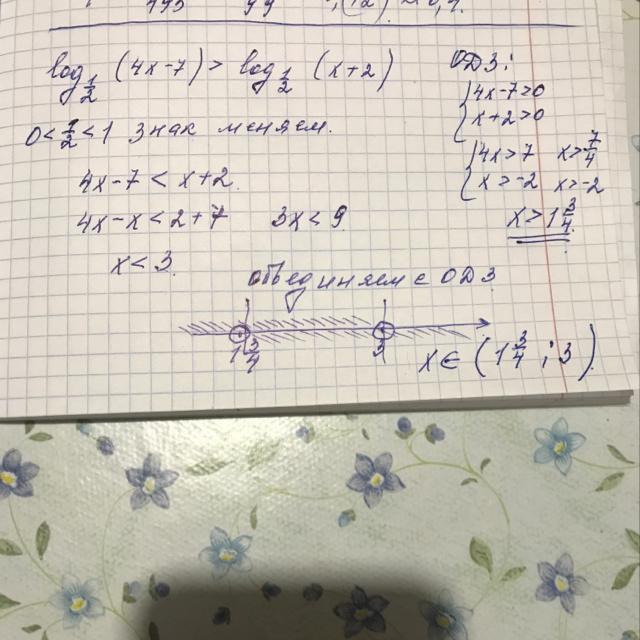 log 1/2 (4x-7) > log 1/2 (x+2)
0 < 1/2 < 1 знак меняем.
4x-7 < x+2.
4x-x < 2+7 3x < 9
x < 3.
ОДЗ:
4x-7>0
x+2>0
4x>7 x>7/4
x>-2 x>-2
x>1 3/4.
объединяем с ОДЗ
1 3/4 3
x ∈ (1 3/4 ; 3).